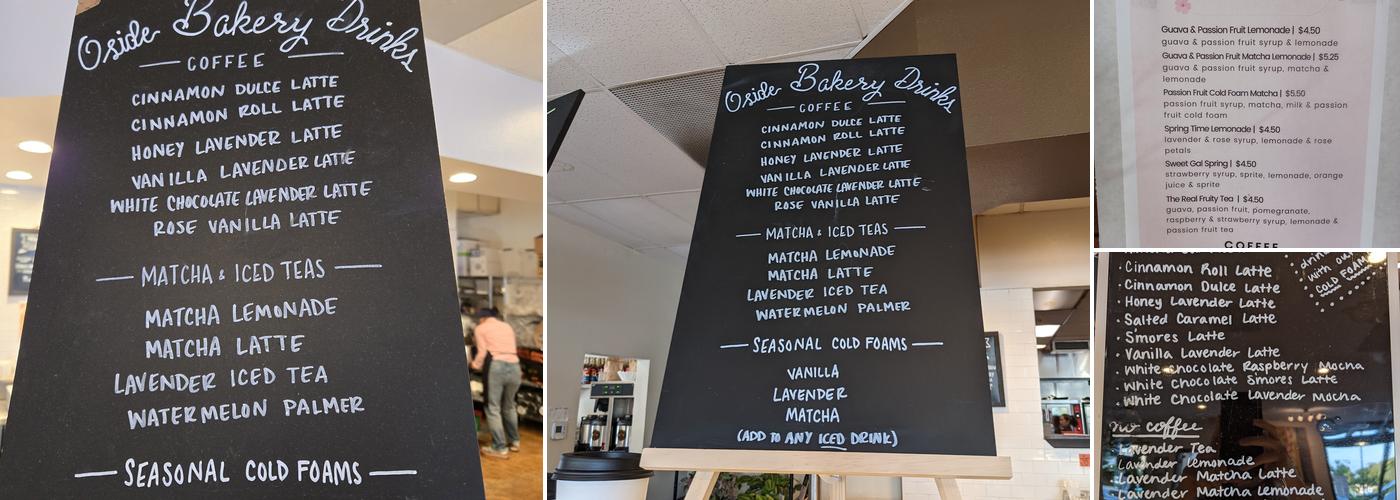 Oside Bakery Drinks
COFFEE
CINNAMON DULCE LATTE
CINNAMON ROLL LATTE
HONEY LAVENDER LATTE
VANILLA LAVENDER LATTE
WHITE CHOCOLATE LAVENDER LATTE
ROSE VANILLA LATTE
MATCHA & ICED TEAS
MATCHA LEMONADE
MATCHA LATTE
LAVENDER ICED TEA
WATERMELON PALMER
SEASONAL COLD FOAMS
Oside Bakery Drinks
COFFEE
CINNAMON DULCE LATTE
CINNAMON ROLL LATTE
HONEY LAVENDER LATTE
VANILLA LAVENDER LATTE
WHITE CHOCOLATE LAVENDER LATTE
ROSE VANILLA LATTE
MATCHA & ICED TEAS
MATCHA LEMONADE
MATCHA LATTE
LAVENDER ICED TEA
WATERMELON PALMER
SEASONAL COLD FOAMS
VANILLA
LAVENDER
MATCHA
(ADD TO ANY ICED DRINK)
Guava & Passion Fruit Lemonade | $4.50
guava & passion fruit syrup & lemonade
Guava & Passion Fruit Matcha Lemonade | $5.25
guava & passion fruit syrup, matcha &
lemonade
Passion Fruit Cold Foam Matcha | $5.50
passion fruit syrup, matcha, milk & passion
fruit cold foam
Spring Time Lemonade | $4.50
lavender & rose syrup, lemonade & rose
petals
Sweet Gal Spring | $4.50
strawberry syrup, sprite, lemonade, orange
juice & sprite
The Real Fruity Tea | $4.50
guava, passion fruit, pomegranate,
raspberry & strawberry syrup, lemonade &
passion fruit tea
COFFEE
with our
COLD FOAM
· Cinnamon Roll Latte
· Cinnamon Dulce Latte
· Honey Lavender Latte
· Salted Caramel Latte
· Smores Latte
· Vanilla Lavender Latte
· White Chocolate Raspberry Mocha
· White Chocolate Smores Latte
· White Chocolate Lavender Mocha
no coffee
Lavender Tea
Lavender Lemonade
Lavender Matcha Latte
Lavender Matcha Lemonade